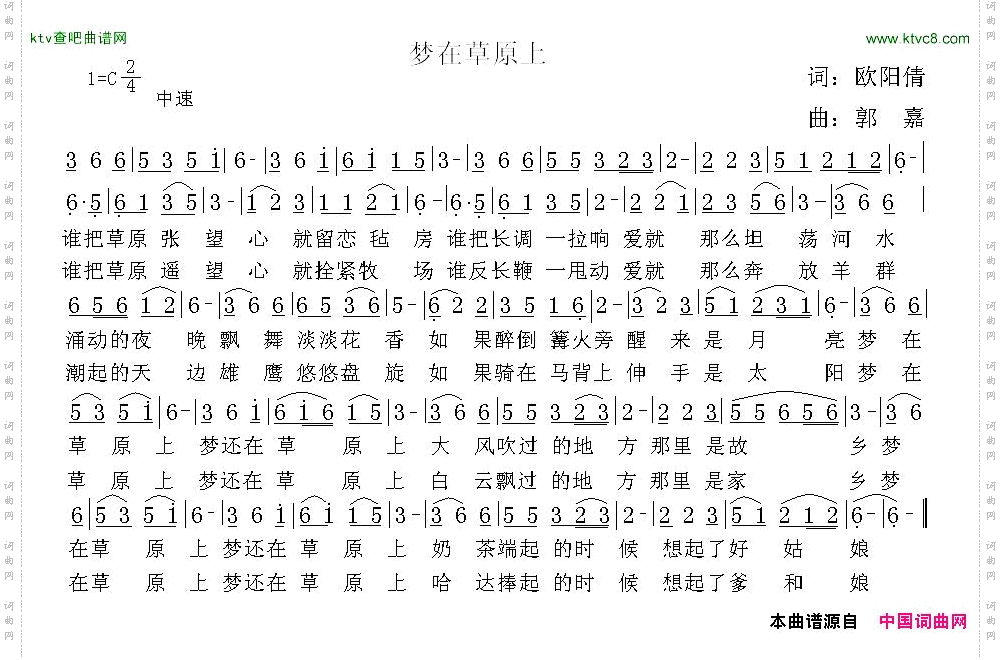 ktv查吧曲谱网
www.ktvc8.com
梦在草原上
1=C 2/4
中速
词：欧阳倩
曲：郭 嘉
3 6 6|5 3 5 1|6-|3 6 1|6 1 1 5|3-|3 6 6|5 5 3 2 3|2-|2 2 3|5 1 2 1 2|6-|
6·5|6 1 3 5|3-|1 2 3|1 1 2 1|6-|6·5|6 1 3 5|2-|2 2 1|2 3 5 6|3-|3 6 6|
谁把草原 张 望 心 就留恋 毡 房 谁把长调 一拉响 爱就 那么坦 荡 河 水
谁把草原 遥 望 心 就拴紧牧 场 谁反长鞭 一甩动 爱就 那么奔 放 羊 群
6 5 6 1 2|6-|3 6 6|6 5 3 6|5-|6 2 2|3 5 1 6|2-|3 2 3|5 1 2 3 1|6-|3 6|
涌动的夜 晚 飘 舞 淡淡花 香 如 果醉倒 篝火旁 醒 来 是 月 亮 梦 在
潮起的天 边 雄 鹰 悠悠盘 旋 如 果骑在 马背上 伸 手 是 太 阳 梦 在
5 3 5 1|6-|3 6 1|6 1 6 1 5|3-|3 6 6|5 5 3 2 3|2-|2 2 3|5 5 6 5 6|3-|3 6|
草 原 上 梦还在 草 原 上 大 风吹过 的地 方 那里 是故 乡 梦
草 原 上 梦还在 草 原 上 白 云飘过 的地 方 那里 是家 乡 梦
6|5 3 5 1|6-|3 6 1|6 1 1 5|3-|3 6 6|5 5 3 2 3|2-|2 2 3|5 1 2 1 2|6-|6-‖
在草 原 上 梦还在 草 原 上 奶 茶端起 的时 候 想起了好 姑 娘
在草 原 上 梦还在 草 原 上 哈 达捧起 的时 候 想起了爹 和 娘
本曲谱源自 中国词曲网